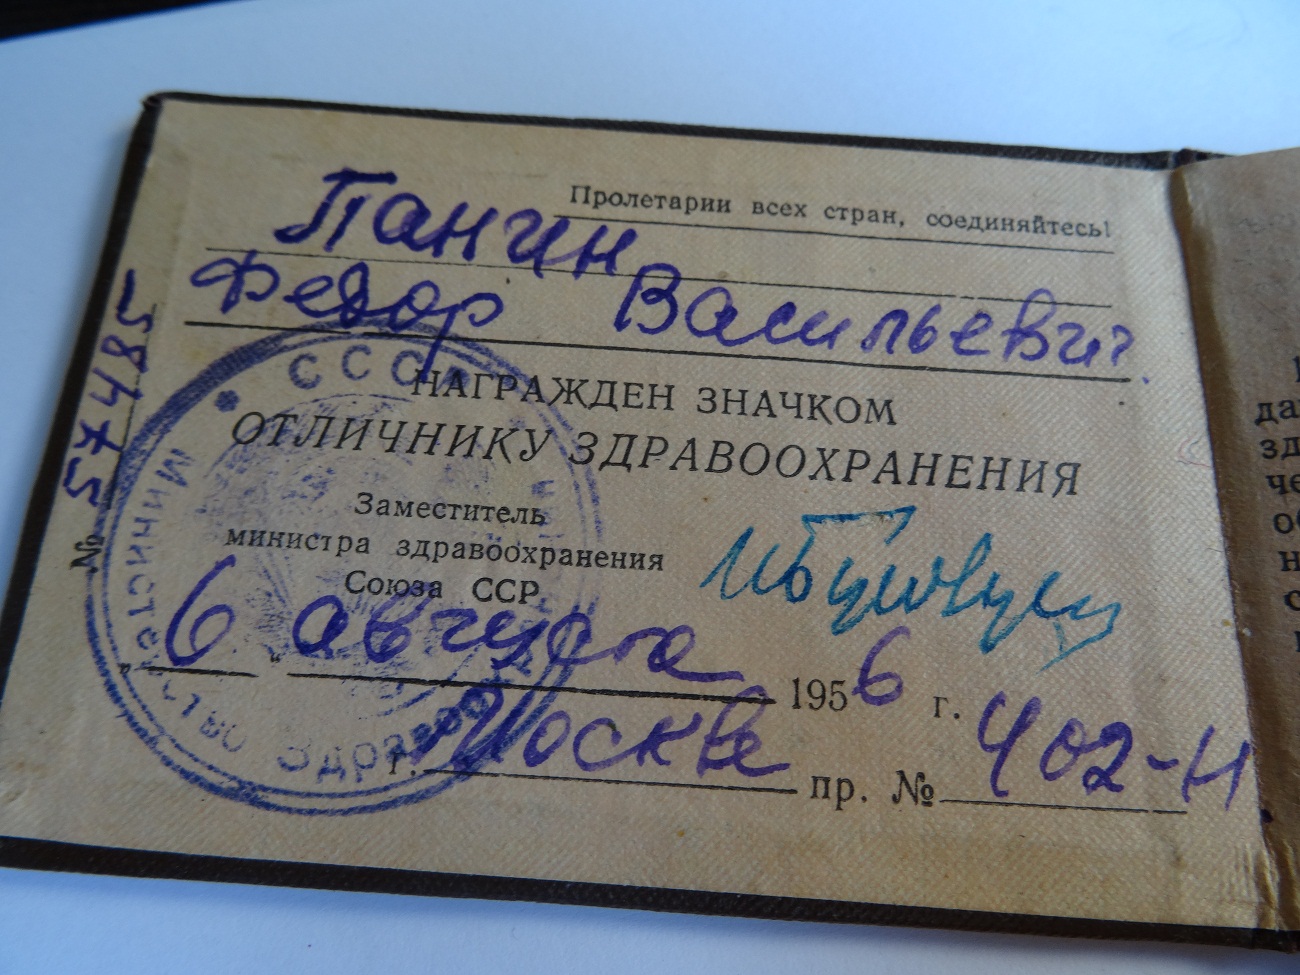 Пролетарии всех стран, соединяйтесь!
Панчин
Федор Васильевич.
НАГРАЖДЕН ЗНАЧКОМ
ОТЛИЧНИКУ ЗДРАВООХРАНЕНИЯ
Заместитель
министра здравоохранения
Союза ССР
„6“ августа 1956 г.
г. Москве пр. № 402-Н.
№ 57485
СССР
Министерство Здраво
да
зд
че
об
н
с